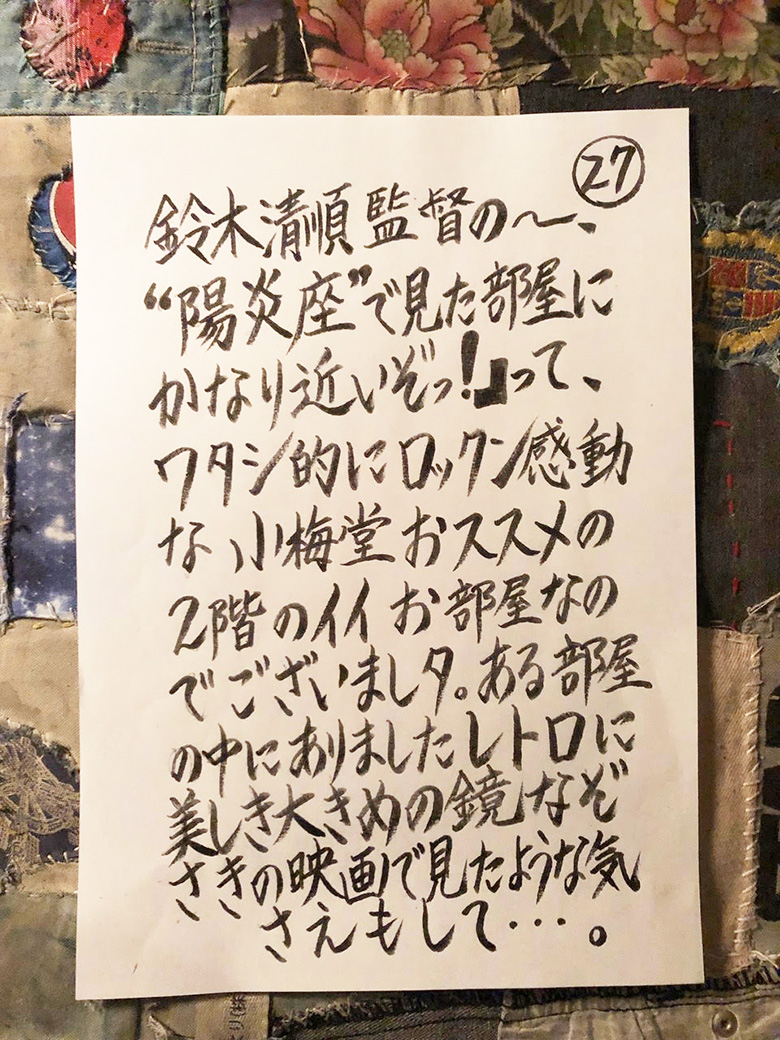 27
鈴木清順監督の〜、
“陽炎座”で見た部屋に
かなり近いぞっ!』って、
ワタシ的にロックン感動
な、小梅堂おススメの
2階のイイお部屋なの
でございましタ。ある部屋
の中にありましたレトロに
美しき大きめの鏡なぞ
さきの映画で見たような気
さえもして・・・。